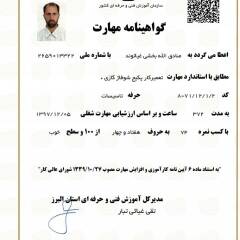 سازمان آموزش فنی و حرفه ای کشور
گواهینامه مهارت
اعطا می گردد به صادق الله بخشی غیاثوند با شماره ملی ۲۲۵۹۰۱۳۳۲۲
مطابق با استاندارد مهارت تعمیرکار پکیج شوفاژ گازی
کد ۸۰۷۱/۱۲/۱/۲ حرفه تاسیسات
به مدت ۳۷۲ ساعت و بر اساس ارزشیابی مهارت شغلی ۱۳۹۷/۱۲/۰۵
با کسب نمره ۷۴ به حروف هفتاد و چهار از ۱۰۰ و سطح خوب
به استناد ماده ۶ آیین نامه کارآموزی و افزایش مهارت مصوب ۱۳۴۹/۱۰/۲۷ شورای عالی کار
مدیرکل آموزش فنی و حرفه ای استان البرز
تقی غیاثی تبار